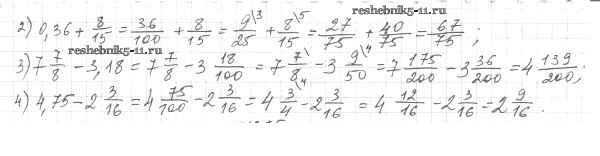 reshebnik5-11.ru
2) 0,36 + 8/15 = 36/100 + 8/15 = 9\3/25 + 8\5/15 = 27/75 + 40/75 = 67/75 ;
reshebnik5-11.ru
3) 7 7/8 - 3,18 = 7 7/8 - 3 18/100 = 7 7\/8 - 3 9\4/50 = 7 175/200 - 3 36/200 = 4 139/200 ;
4) 4,75 - 2 3/16 = 4 75/100 - 2 3/16 = 4 3\4/4 - 2 3/16 = 4 12/16 - 2 3/16 = 2 9/16 .